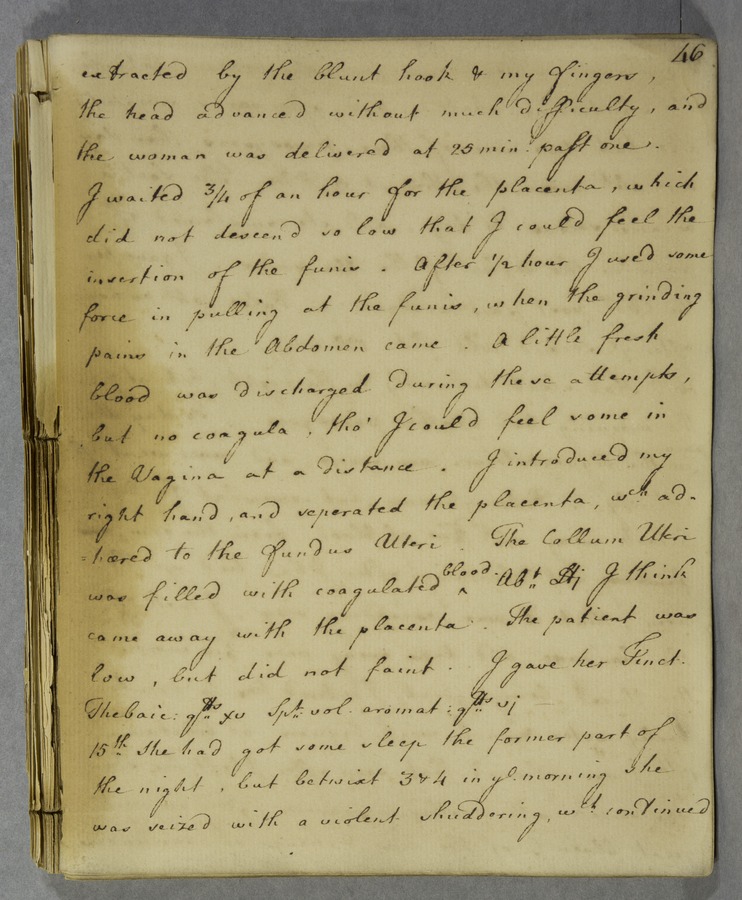 46
extracted by the blunt hook & my fingers,
the head advanced without much difficulty, and
the woman was delivered at 25 min: past one.
I waited 3/4 of an hour for the placenta, which
did not descend so low that I could feel the
insertion of the funis. After 1/2 hour I used some
force in pulling at the funis, when the grinding
pains in the Abdomen came. A little fresh
blood was discharged during these attempts,
but no coagula, tho' I could feel some in
the Vagina at a distance. I introduced my
right hand, and seperated the placenta, wch ad-
=hæred to the fundus Uteri. The Collum Uteri
was filled with coagulated ^blood. Abt I think
came away with the placenta. The patient was
low, but did not faint. I gave her Tinct.
Thebaic: gtts xv Spt: vol. aromat: gtts vj
15th She had got some sleep the former part of
the night, but betwixt 3 & 4 in ye morning she
was seized with a violent shuddering, wch continued